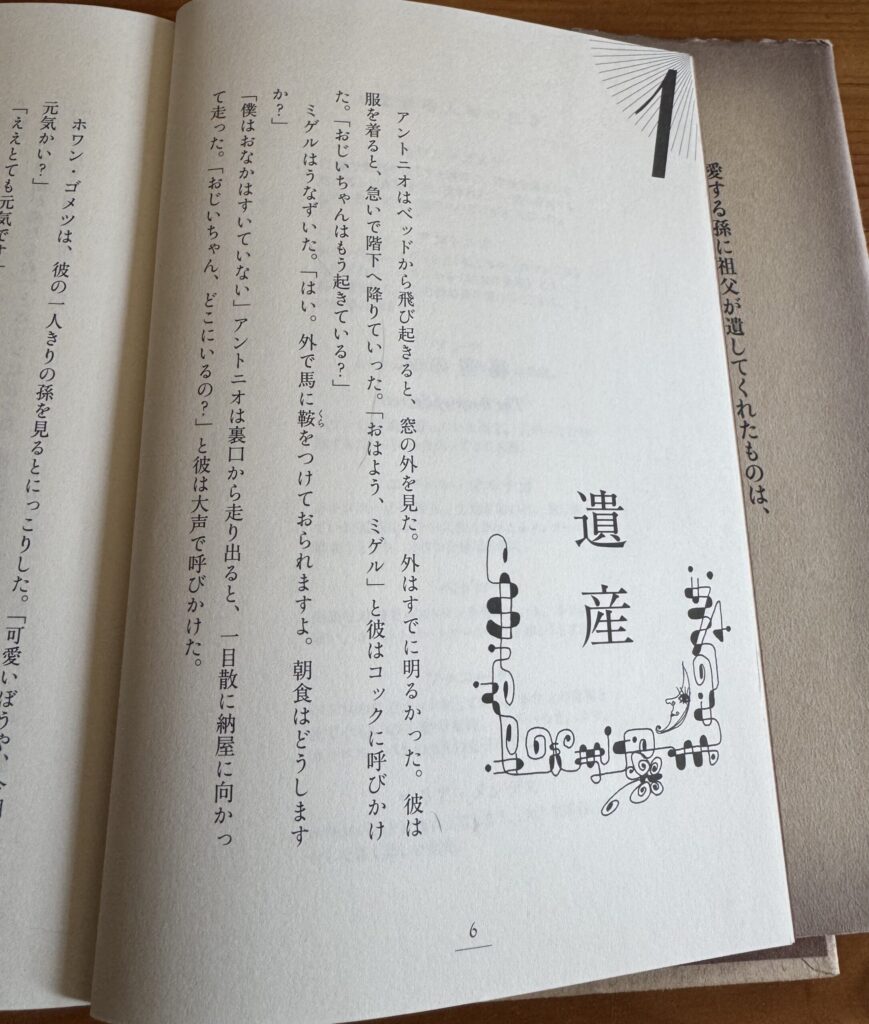 愛する孫に祖父が遺してくれたものは、
1
遺産
アントニオはベッドから飛び起きると、窓の外を見た。外はすでに明るかった。彼は
服を着ると、急いで階下へ降りていった。「おはよう、ミゲル」と彼はコックに呼びかけ
た。「おじいちゃんはもう起きている?」
ミゲルはうなずいた。「はい。外で馬に鞍くらをつけておられますよ。朝食はどうします
か?」
「僕はおなかはすいていない」アントニオは裏口から走り出ると、一目散に納屋に向かっ
て走った。「おじいちゃん、どこにいるの?」と彼は大声で呼びかけた。
6
ホワン・ゴメツは、彼の一人きりの孫を見るとにっこりした。「可愛いぼうや、
元気かい?」
「ええとても元気です」